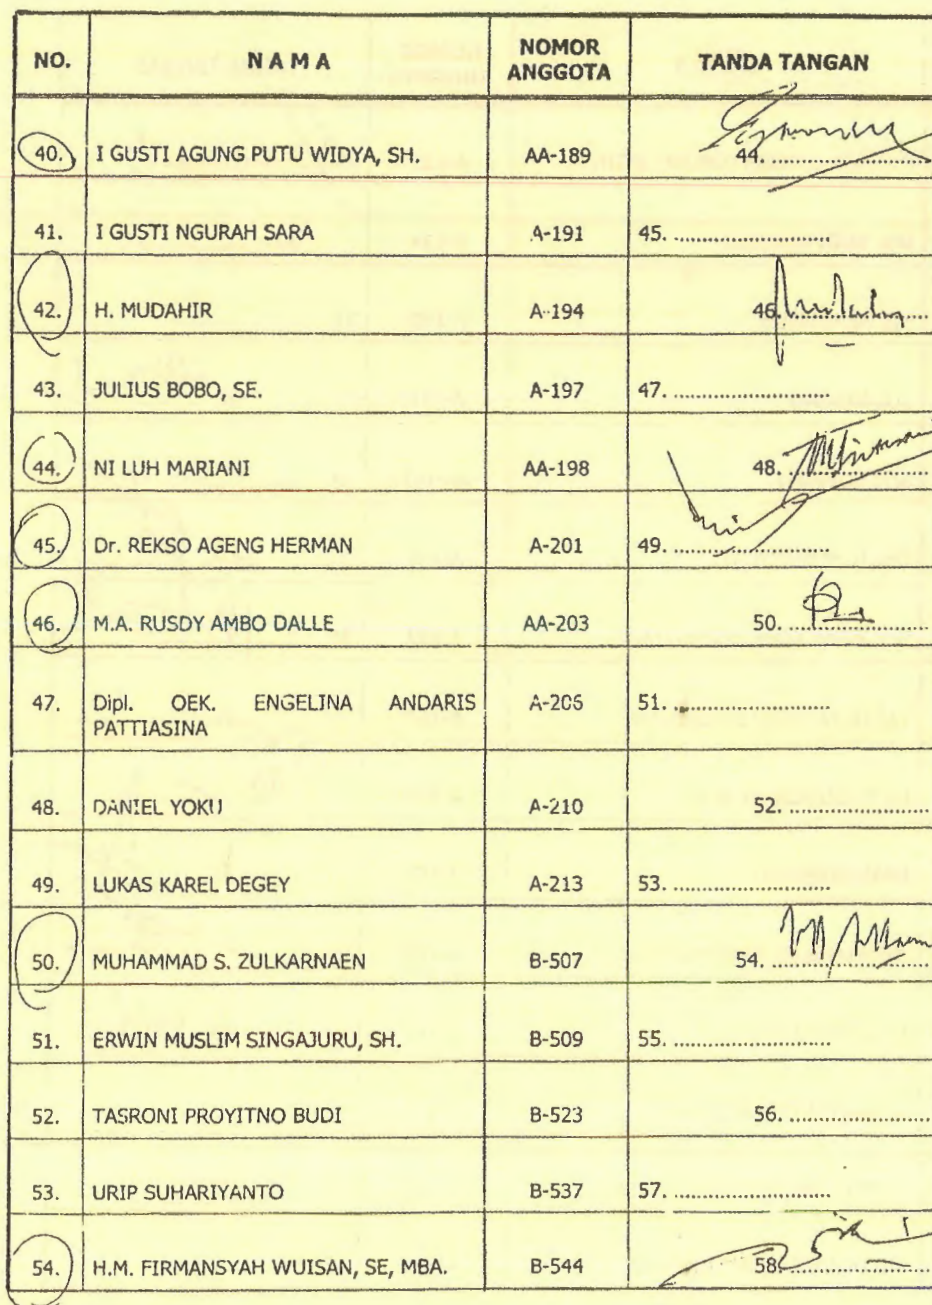 NO. N A M A NOMOR ANGGOTA TANDA TANGAN
40. I GUSTI AGUNG PUTU WIDYA, SH. AA-189 44. ........................
41. I GUSTI NGURAH SARA A-191 45. ............................
42. H. MUDAHIR A-194 46. ........................
43. JULIUS BOBO, SE. A-197 47. ............................
44. NI LUH MARIANI AA-198 48. ........................
45. Dr. REKSO AGENG HERMAN A-201 49. ............................
46. M.A. RUSDY AMBO DALLE AA-203 50. ........................
47. Dipl. OEK. ENGELINA ANDARIS A-206 51. ............................
PATTIASINA
48. DANIEL YOKU A-210 52. ........................
49. LUKAS KAREL DEGEY A-213 53. ............................
50. MUHAMMAD S. ZULKARNAEN B-507 54. ............................
51. ERWIN MUSLIM SINGAJURU, SH. B-509 55. ............................
52. TASRONI PROYITNO BUDI B-523 56. ........................
53. URIP SUHARIYANTO B-537 57. ............................
54. H.M. FIRMANSYAH WUISAN, SE, MBA. B-544 58. ........................